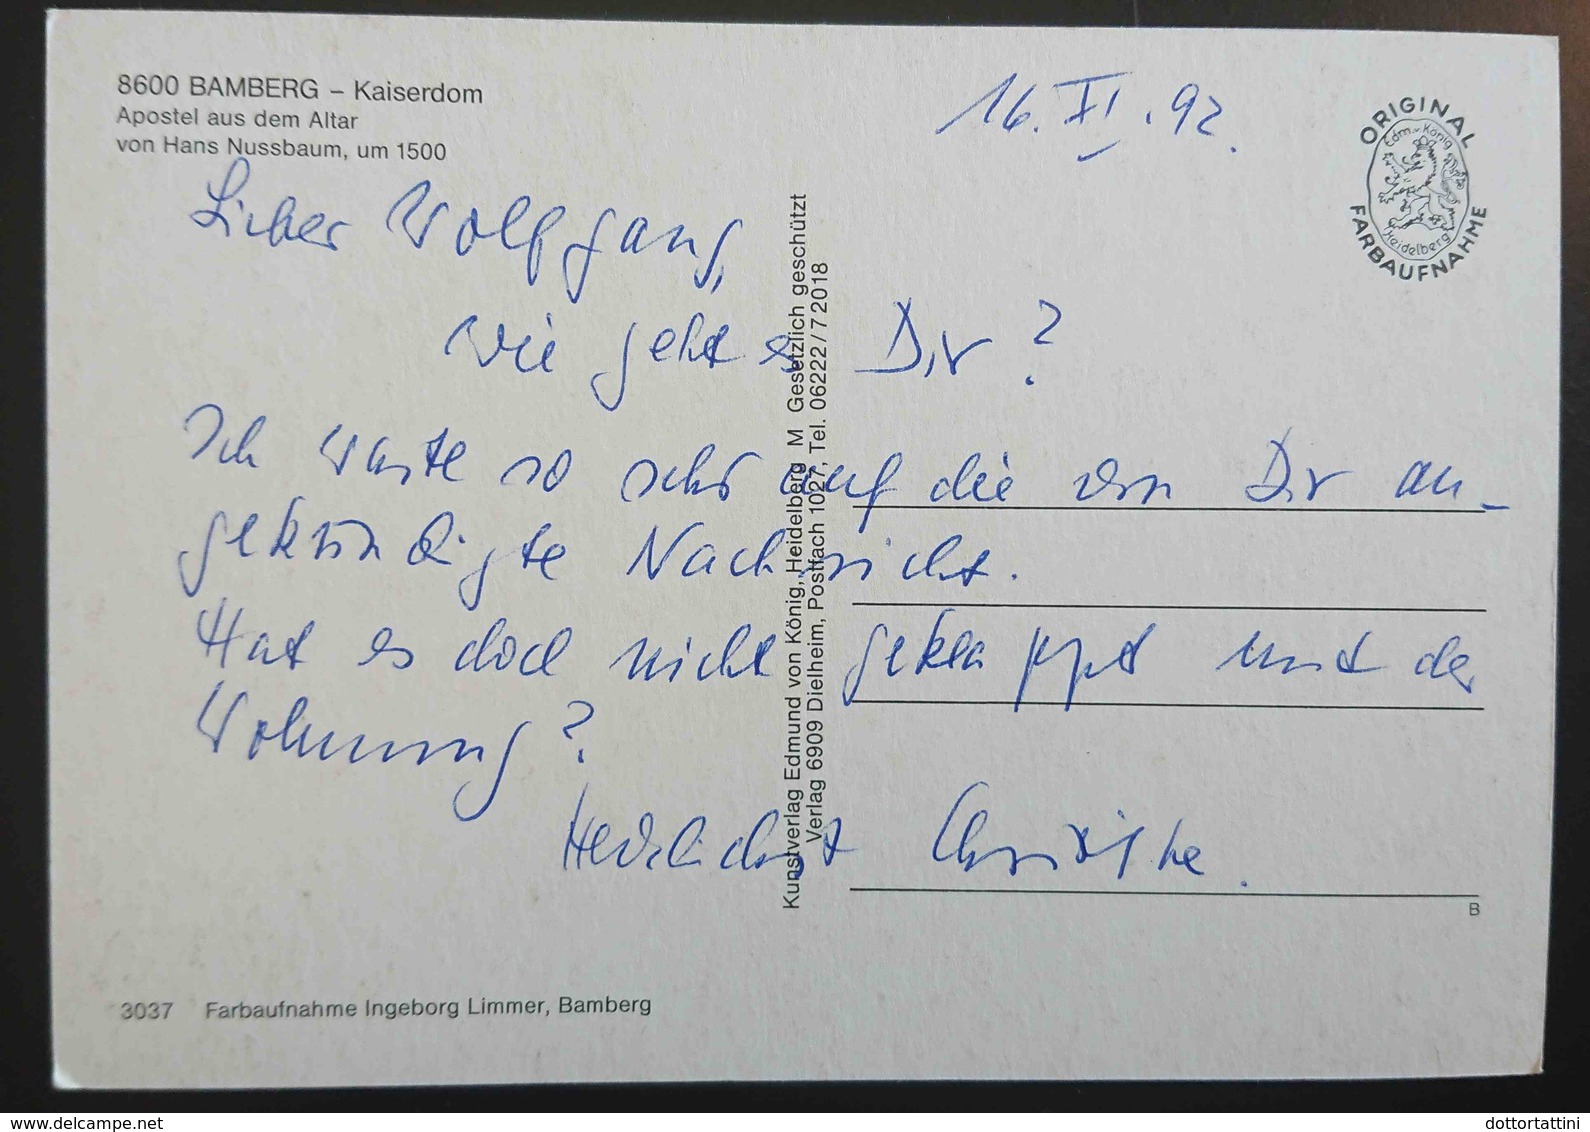 8600 BAMBERG – Kaiserdom
Apostel aus dem Altar
von Hans Nussbaum, um 1500
16. XI. 92.
ORIGINAL
Edm. v. König
Heidelberg
FARBAUFNAHME
Lieber Wolfgang,
wie geht es Dir?
Ich warte so sehr auf die von Dir an-
gekündigte Nachricht.
Hat es doch nicht geklappt mit der
Wohnung?
Herzlichst Christine.
Kunstverlag Edmund von König, Heidelberg M Gesetzlich geschützt
Verlag 6909 Dielheim, Postfach 1027, Tel. 06222/72018
B
3037 Farbaufnahme Ingeborg Limmer, Bamberg
www.delcampe.net
dottortattini